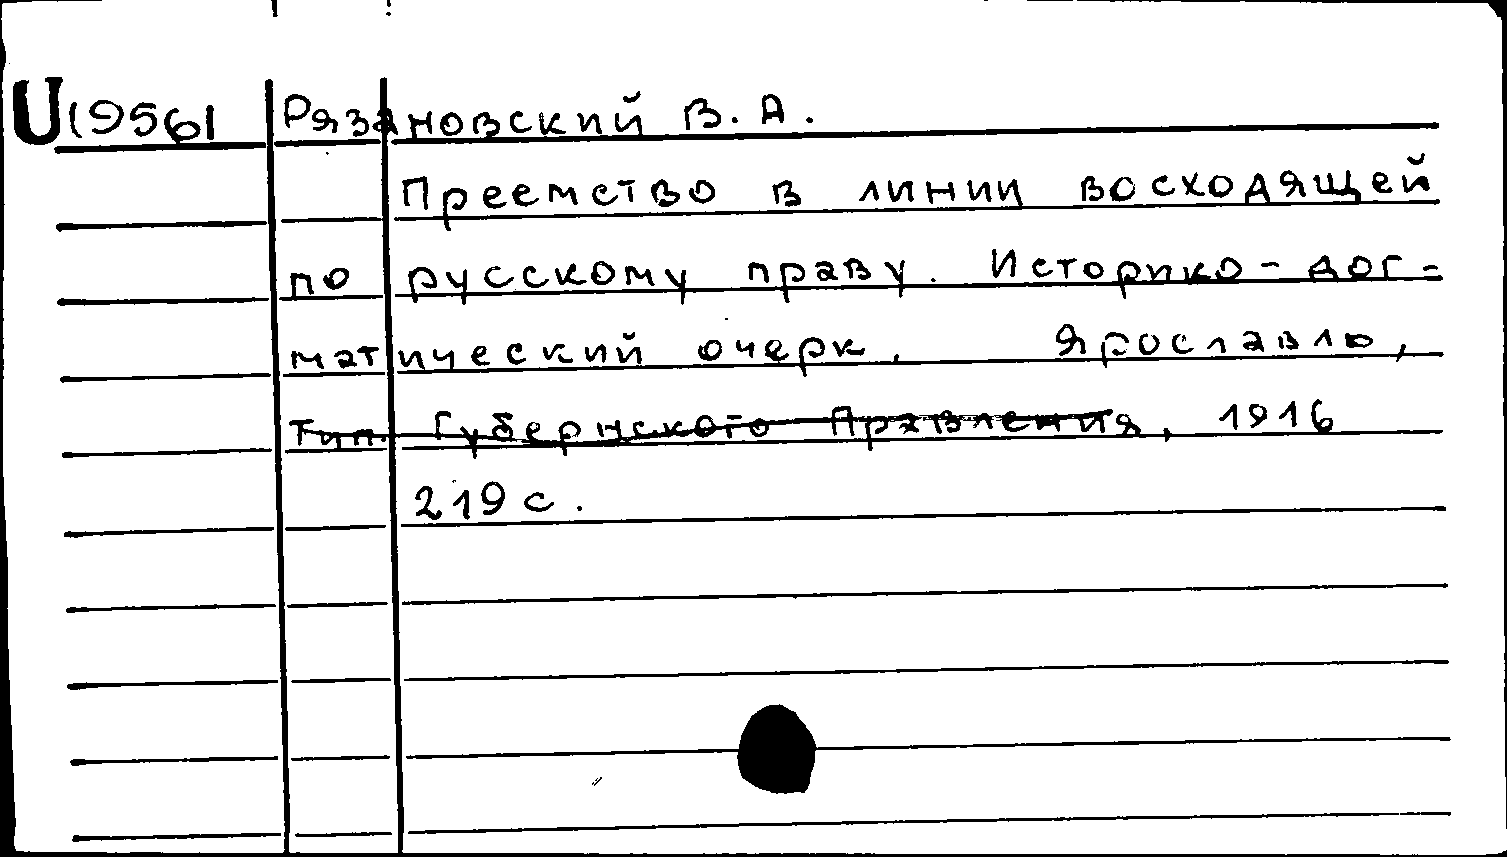 U19561 Рязановский В. А.
Преемство в линии восходящей
по русскому праву. Историко-дог-
матический очерк. Ярославль,
Тип. Губернского Правления, 1916
219 с.